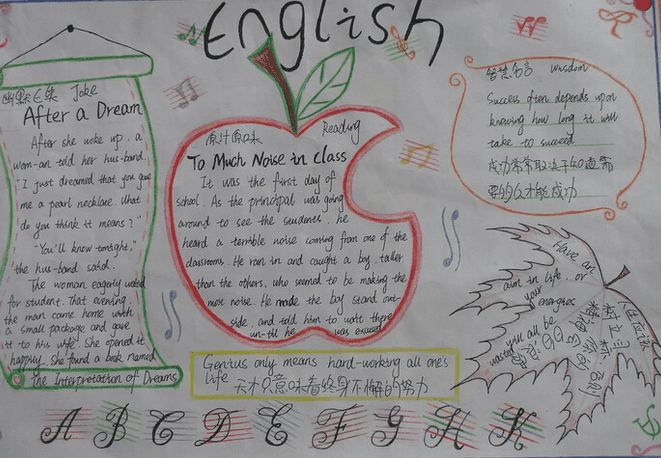 English
幽默压轴 Joke
After a Dream
After she woke up, a
wom-an told her hus-band.
"I just dreamed that you gave
me a pearl necklace. What
do you think it means?"
"You'll know tonight,"
the hus-band said.
The woman eagerly waited
for student. That evening,
the man came home with
a small package and gave
it to his wife. She opened it
happily. She found a book named
the Interpretation of Dreams
原汁原味 Reading
To Much Noise in Class
It was the first day of
school. As the principal was going
around to see the students, he
heard a terrible noise coming from one of the
classrooms. He ran in and caught a boy, taller
than the others, who seemed to be making the
most noise. He made the boy stand out-
side, and told him to wait there
un-till he was excused
Genius only means hard-working all one's
life
天才只意味着终身不懈的努力
智慧名言 Wisdom
Success often depends upon
knowing how long it will
take to succeed
成功常常取决于知道需
要多久才能成功
Have an
aim in life, or
your energies
will all be
wasted
人生应该
树立目标
A B C D E F G H K